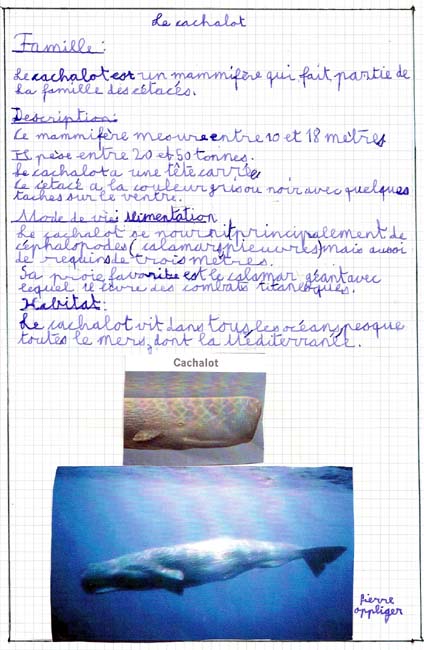 Le cachalot
Famille:
Le cachalot est un mammifère qui fait partie de
la famille des cétacés.
Description:
Ce mammifère mesure entre 10 et 18 mètres
Il pèse entre 20 et 50 tonnes.
Le cachalot a une tête carrée
Ce cétacé a la couleur gris ou noir avec quelques
taches sur le ventre.
Mode de vie: alimentation
Le cachalot se nourrit principalement de
céphalopodes (calamars, pieuvres) mais aussi
de requins de trois mètres.
Sa proie favorite est le calamar géant avec
lequel il livre des combats titanesques.
Habitat:
Le cachalot vit dans tous les océans, presque
toutes le mers, dont la Méditerranée.
Cachalot
pierre
oppliger